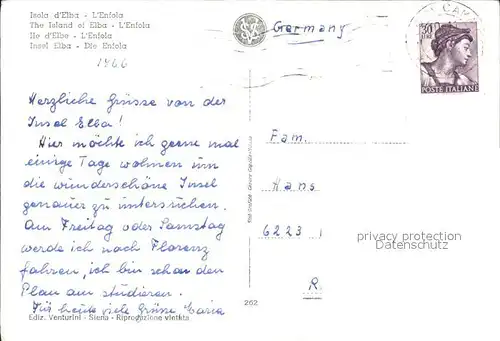 Isola d'Elba - L'Enfola
The Island of Elba - L'Enfola
Ile d'Elbe - L'Enfola
Insel Elba - Die Enfola
1966
Germany
CAM
30
LIRE
POSTE ITALIANE
Herzliche Grüsse von der
Insel Elba!
Hier möchte ich gerne mal
einige Tage wohnen um
die wünderschöne Insel
genauer zu untersuchen.
Am Freitag oder Samstag
werde ich nach Florenz
fahren, ich bin schon den
Plan am studieren.
Für heute viele Grüsse Maria
Fam.
Hans
6223
R.
privacy protection
Datenschutz
262
Ediz. Venturini - Siena - Riproduzione vietata